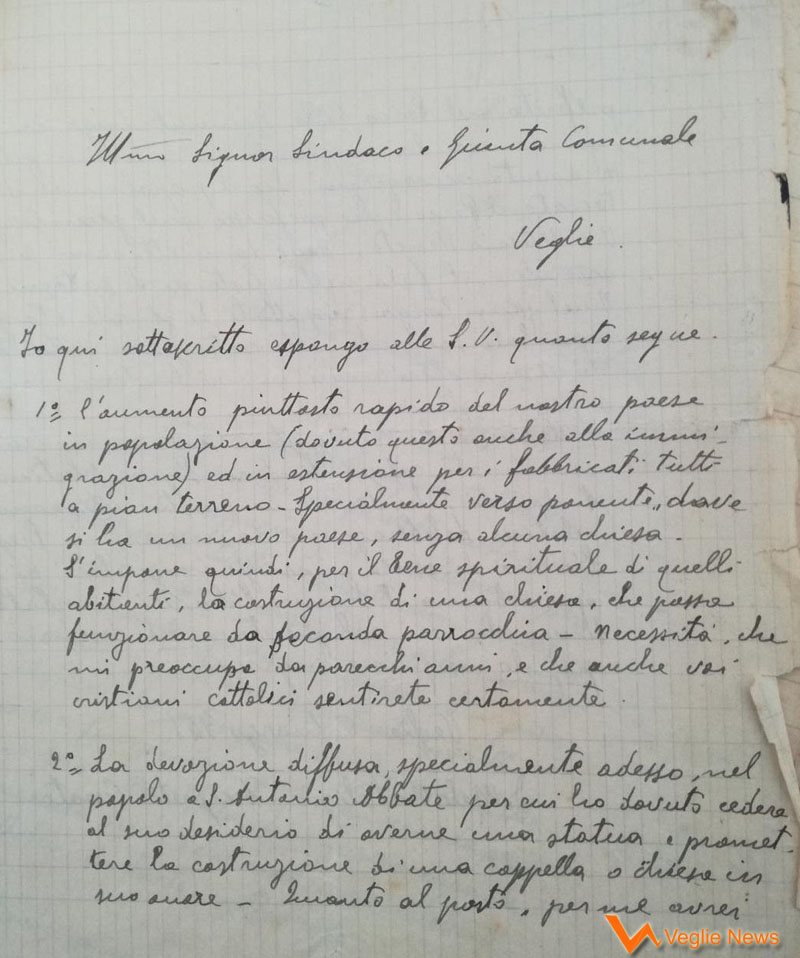 Ill.mo Signor Sindaco e Giunta Comunale
Veglie.
Io qui sottoscritto espongo alle S. V. quanto segue.
1º= L'aumento piuttosto rapido del nostro paese
in popolazione (dovuto questo anche alla immi-
grazione) ed in estensione per i fabbricati tutti
a pian terreno - Specialmente verso ponente, dove
si ha un nuovo paese, senza alcuna chiesa.
S'impone quindi, per il bene spirituale di quelli
abitanti, la costruzione di una chiesa, che possa
funzionare da seconda parrocchia - Necessità, che
mi preoccupa da parecchi anni, e che anche voi
cristiani cattolici sentirete certamente.
2º= La devozione diffusa, specialmente adesso, nel
popolo a S. Antonio Abbate per cui ho dovuto cedere
al suo desiderio di averne una statua e promet-
tere la costruzione di una cappella o chiesa in
suo onore - Quanto al posto, per me avrei
Veglie News